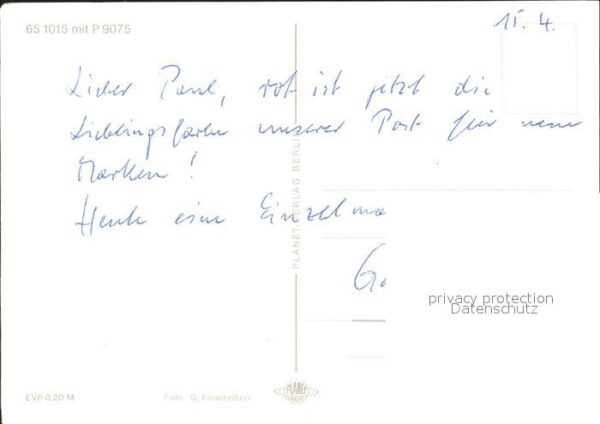 65 1015 mit P 9075
15. 4.
Lieber Paul, rot ist jetzt die
Lieblingsfarbe unserer Post für neue
Marken!
Heute eine Einzelma
PLANET-VERLAG BERLIN
privacy protection
Datenschutz
EVP 0,20 M
Foto: G. Feuereißen
PLANET